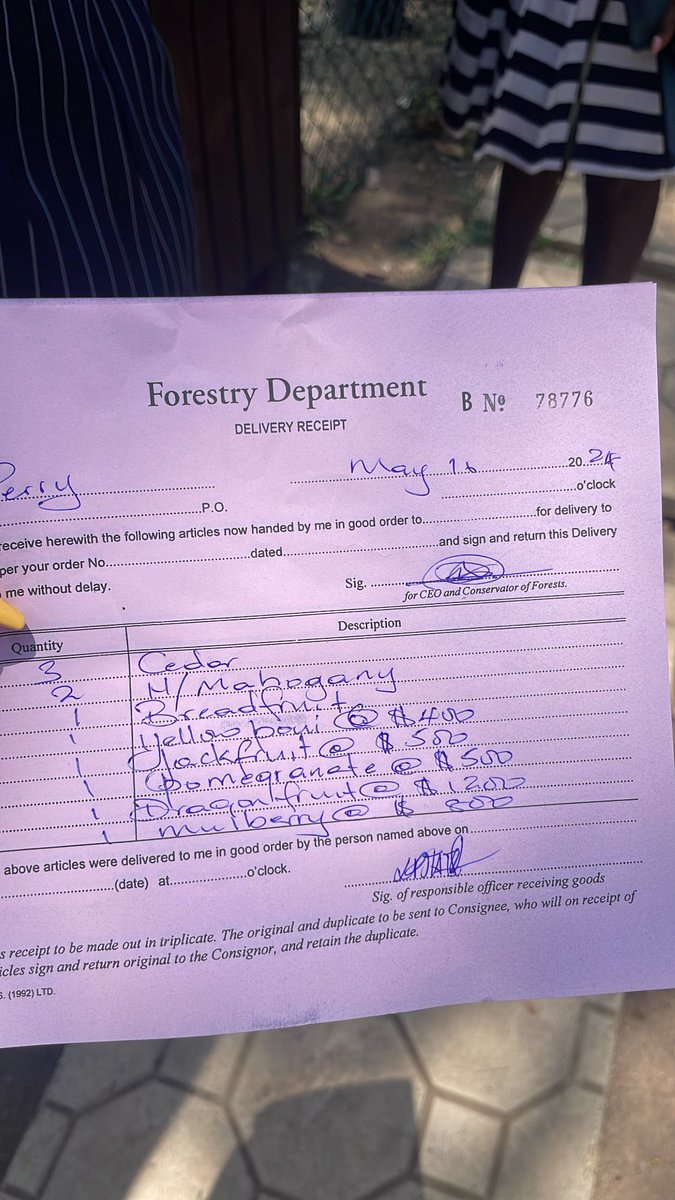 Forestry Department
B Nº 78776
DELIVERY RECEIPT
Perry May 16 2024
P.O. o'clock
receive herewith the following articles now handed by me in good order to for delivery to
per your order No. dated and sign and return this Delivery
me without delay.
Sig.
for CEO and Conservator of Forests.
Quantity Description
3 Cedar
2 H/Mahogany
1 Breadfruit
1 Yellow poui @ $400
1 Jackfruit @ $500
1 Pomegranate @ $500
1 Dragonfruit @ $1200
1 Mulberry @ $ 800
above articles were delivered to me in good order by the person named above on
(date) at o'clock.
Sig. of responsible officer receiving goods
s receipt to be made out in triplicate. The original and duplicate to be sent to Consignee, who will on receipt of
icles sign and return original to the Consignor, and retain the duplicate.
S. (1992) LTD.